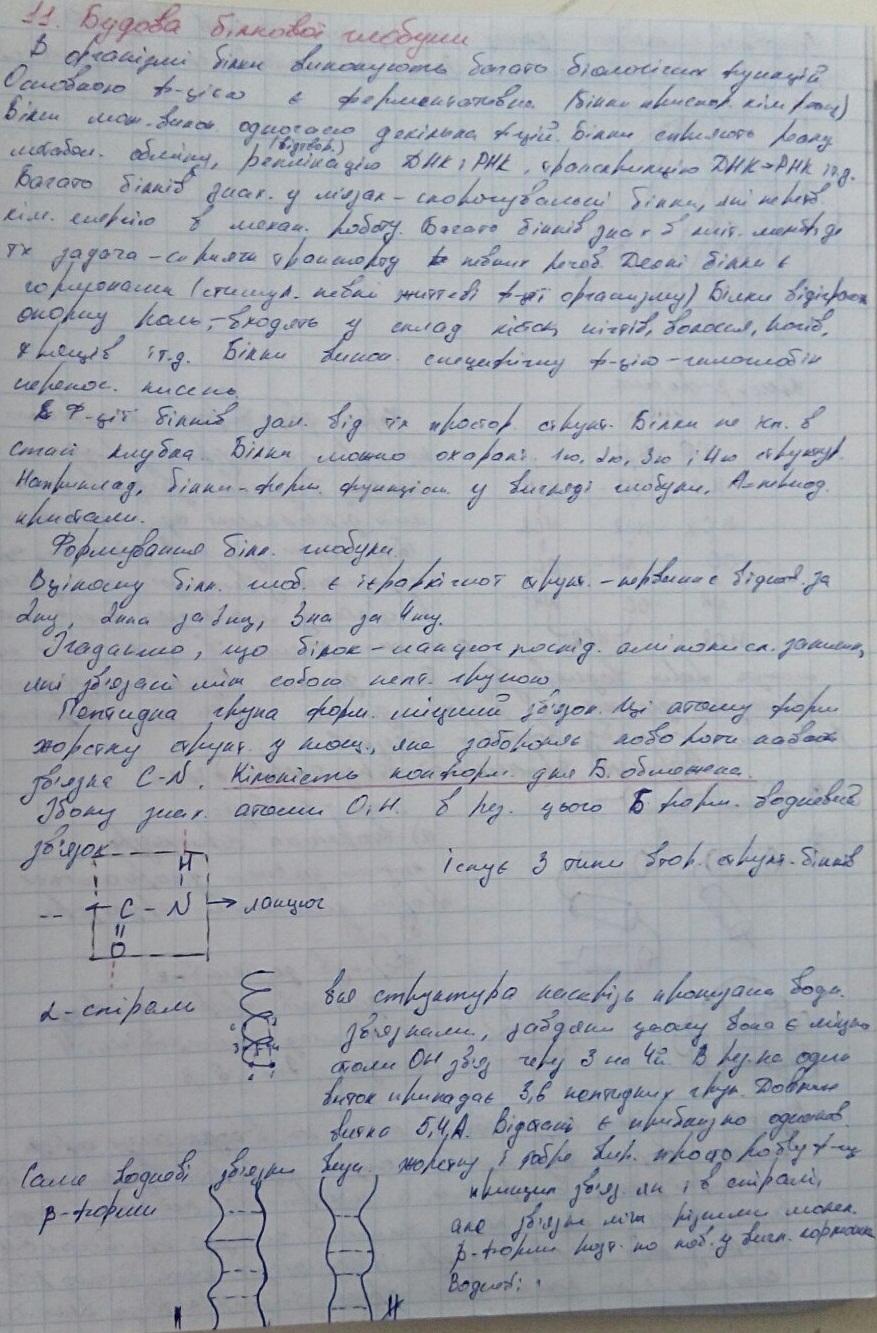 11. Будова білкової глобули
В організмі білки виконують багато біологічних функцій
Основною ф-цією є ферментативна (білки прискор. хім. реакц)
Білки мож. викон. одночасно декілька ф-цій. Білки сприяють реакц
метабол. обміну, реплікацію ДНК і РНК, транскрипцію ДНК→РНК і т.д.
(відтвор.)
Багато білків знах. у м'язах – скорочувальні білки, які перетв
хім. енергію в механ. роботу. Багато білків знах в кліт. мембр де
їх задача – сприяти транспорту певних речов. Деякі білки є
гормонами (стимул. певні життєві ф-ії організму) Білки відіграють
опорну роль, – входять у склад кісток, нігтів, волосся, рогів,
хрящів і т.д. Білки викон. специфічну ф-цію – гемоглобін
перенос. кисень.
Ф-ції білків зал. від їх простор. структ. Білки не в
стані клубка. Білки можна охаракт. 1ю, 2ю, 3ю і 4ю структур.
Наприклад, білки-ферм. функціон. у вигляді глобули, А-період.
кристали.
Формування білк. глобули.
В цілому білк. глоб. є ієрархічної структ. – первинна відпов. за
2ну, 2нна за 3ну, 3на за 4ну.
Згадаємо, що білок – ланцюг послід. амінокисл. залишк,
які зв'язані між собою пепт. групою
Пептидна група форм. міцний зв'язок. Ці атоми форм
жорстку структ. у площ., яка забороняє повороти навколо
зв'язка C-N. Кількість конформ. для Б. обмежена.
Збоку знах. атоми О і Н. в рез. цього Б форм. водневий
зв'язок
Існує 3 типи втор. структ. білків
H
-- C - N → ланцюг
O
α-спіраль
вся структура наскрізь пронизана водн.
зв'язками, завдяки цьому вона є міцно
ОН зв'яз через 3 на 4й. В рез. на один
виток припадає 3,6 пептидних груп. Довжина
витка 5,4 А. Відстані є приблизно однаков.
Саме водневі зв'язки жорстку і добре
β-форми
принцип зв'яз як і в спіралі,
але зв'язки між різними молек.
β-форми
Водневі:
I
II